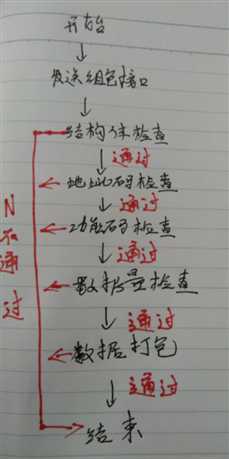 开始
发送组包接口
结构体检查
通过
地址码检查
通过
功能码检查
通过
数据量检查
通过
数据打包
通过
结束
N不通过